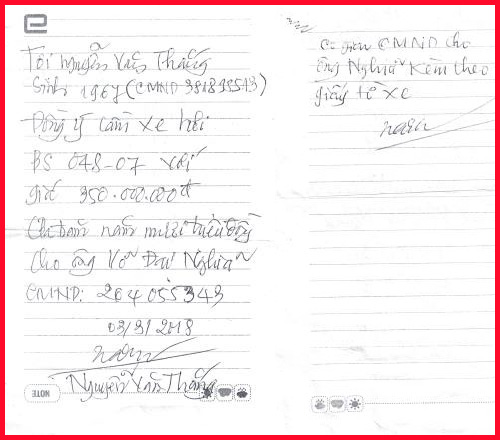 Tôi Nguyễn Văn Thắng
Sinh 1967 (CMND 381818513)
Đồng ý cầm xe hơi
BS 048-07 với
giá 350.000.000đ
(Ba trăm năm mươi triệu đồng)
cho ông Võ Đại Nghĩa
CMND: 264055343
03/31 2018
Nguyễn Văn Thắng
NOTE
CMND cho
ông Nghĩa kèm theo
giấy tờ xe